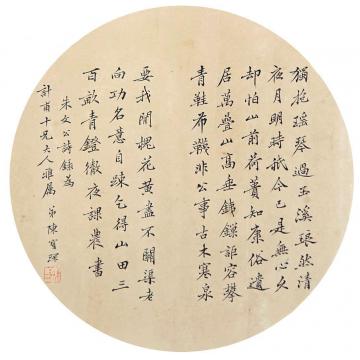 獨抱瑤琴過玉溪琅然清
夜月明時祇今已是無心久
却怕山前荷蕢知康俗遺
居萬疊山高垂鐵鎖詎容攀
青鞋布韈非公事古木寒泉
要我閒槐花黃盡不關渠老
向功名意自踈乞得山田三
百畝青鐙徹夜課農書
朱文公詩錄爲
計甫十兄大人雅属 弟陳寶琛